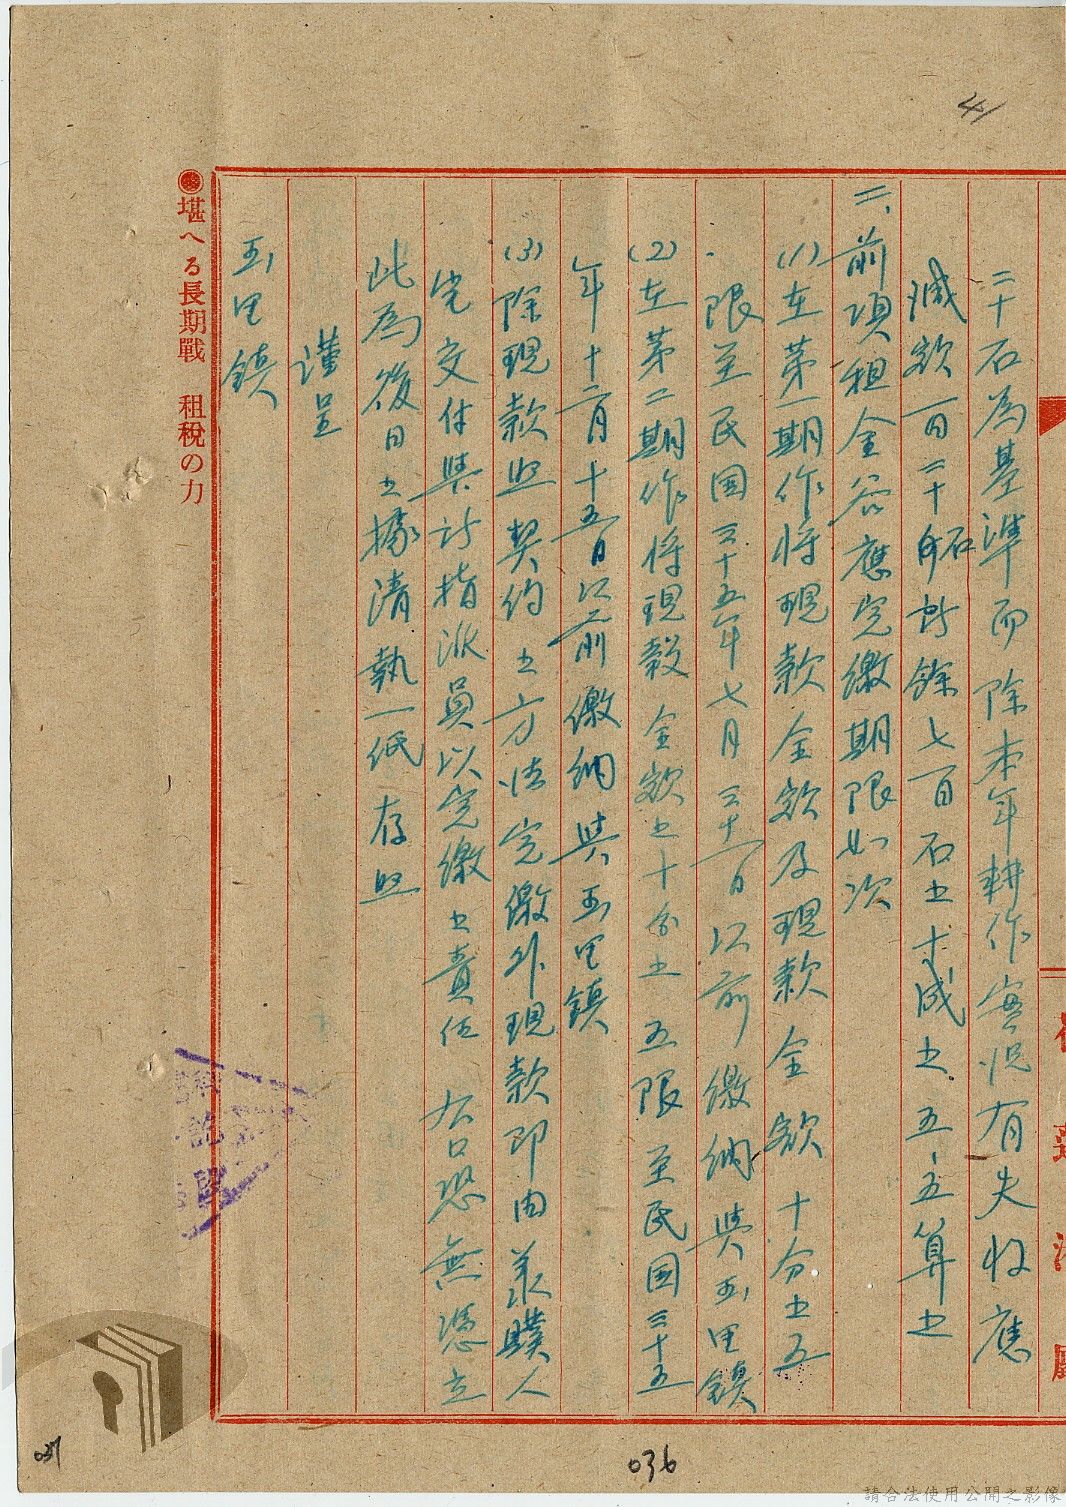 41
二十石為基準而除本年耕作實況有失收應
減欵一百二十石外計餘七百石之十成之五、五算之
二、前項租金谷應完繳期限如次
(1)在第一期作将現款金欵及現款金欵十分之五
限至民国三十五年七月三十一日以前繳納與玉里鎮
(2)在第二期作将現穀金欵之十分之五限至民国三十五
年十二月十五日以前繳納與玉里鎮
(3)除現款照契约之方法完繳外現款即由承贌人
完交付與計指派員以完繳之責任 右口恐無憑立
此為後日之據清執一紙存照
謹呈
玉里鎮
●堪へる長期戰 租税の力
037
036
請合法使用公開之影像